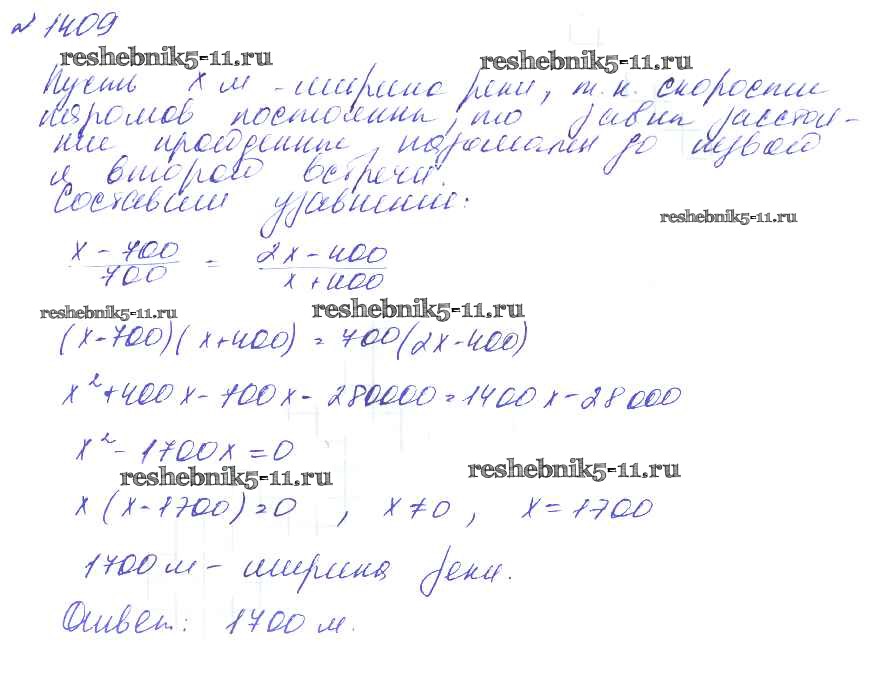 № 1409
reshebnik5-11.ru reshebnik5-11.ru
Пусть x м - ширина реки, т.к. скорости
паромов постоянны, то равны расстоя-
ние пройденные паромами до первой
и второй встречи.
Составим уравнение:
reshebnik5-11.ru
x - 700 / 700 = 2x - 400 / x + 400
reshebnik5-11.ru reshebnik5-11.ru
(x - 700)(x + 400) = 700(2x - 400)
x² + 400x - 700x - 280000 = 1400x - 28000
x² - 1700x = 0
reshebnik5-11.ru reshebnik5-11.ru
x(x - 1700) = 0 , x ≠ 0 , x = 1700
1700 м - ширина реки.
Ответ: 1700 м.